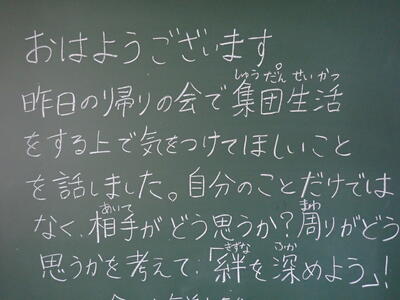 おはようございます。
昨日の帰りの会で集団生活
をする上で気をつけてほしいこと
を話しました。自分のことだけでは
なく、相手がどう思うか?周りがどう
思うかを考えて、「絆を深めよう」!